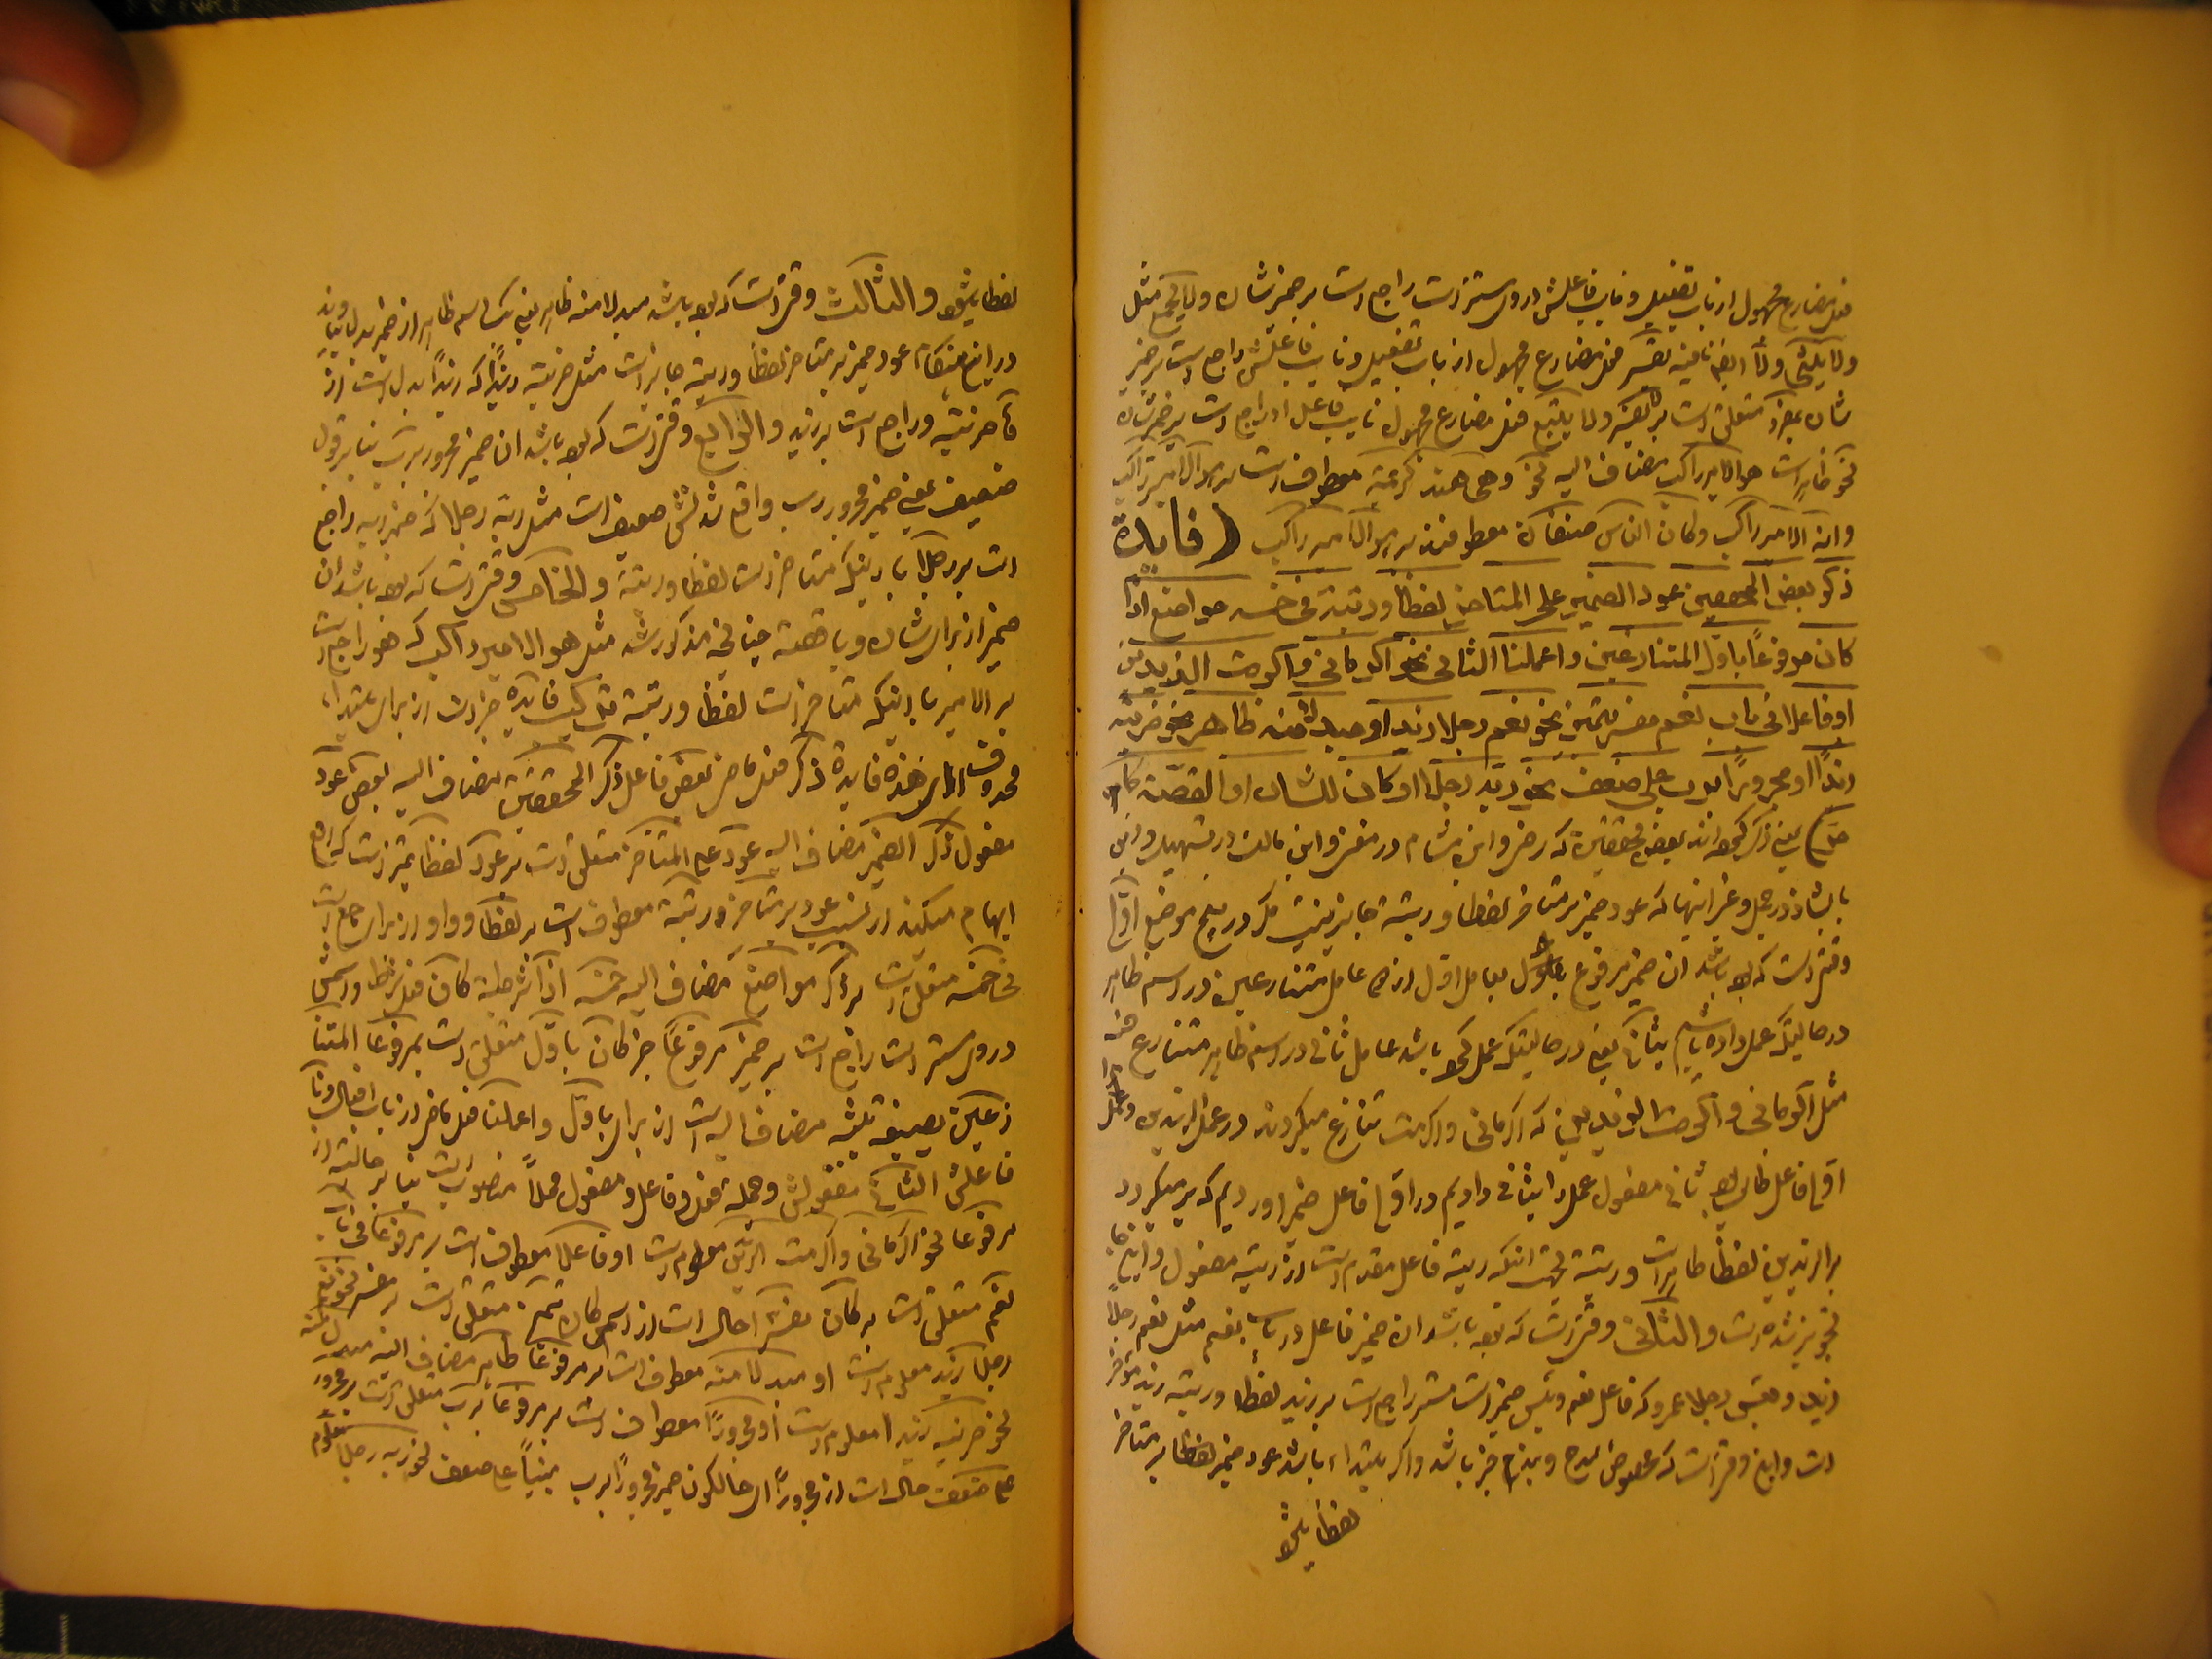 فعل مضارع مجهول از باب تفعیل و نایب فاعلش در وی مستتر است راجع است بر ضمیر شان و لا یجمع مثل
ولا یثنی ولا ایضا نافیه یفسر فعل مضارع مجهول از باب تفعیل و نایب فاعلش راجع است بر ضمیر
شان بمفرد متعلق است بر یفسر ولا یتبع فعل مضارع مجهول نایب فاعل او راجع است بر ضمیر شان
نحو ظاهر است هو الامیر راکب مضاف الیه نحو وهی هند کریمة معطوف است بر هو الامیر راکب
وانه الامیر راکب وکان الناس صنفان معطوفند بر هو الامیر راکب (فایدة
ذکر بعض المحققین عود الضمیر علی المتاخر لفظا ورتبة فی خمسة مواضع اذا
کان مرفوعا باول المتنازعین واعملنا الثانی نحو اکرمانی واکرمت الزیدین
او فاعلا فی باب نعم مفسرا بتمیز نحو نعم رجلا زید او مبدلا منه ظاهر نحو ضربته
زیدا او مجرورا برب علی ضعف نحو ربه رجلا او کان للشان او القصة کما مر
یعنی ذکر کرده اند بعض محققین که رضی و ابن هشام در مغنی و ابن مالک در تسهیل و ابن
بابشاذ در جمل و غیر اینها که عود ضمیر بر متاخر لفظا ورتبة جایز نیست مگر در پنج موضع اول
وقتی است که بوده باشد ان ضمیر مرفوع بعامل اول از دو عامل متنازعین در اسم ظاهر
در حالتیکه عمل داده باشیم بثانی یعنی در حالتیکه عمل کرده باشد عامل ثانی در اسم ظاهر متنازع فیه
مثل اکرمانی واکرمت الزیدین که اکرمانی واکرمت تنازع میکردند در عمل الزیدین
اول فاعل طالب بود ثانی مفعول عمل را بثانی دادیم در اول فاعل ضمیر اوردیم که بر میگردد
بر الزیدین لفظا ظاهر است ورتبة بجهت انکه رتبه فاعل مقدم است از رتبه مفعول و این جا
تجویز شده است والثانی وقتی است که بوده باشد ان ضمیر فاعل در باب نعم مثل نعم رجلا
زید وبئس رجلا عمرو که فاعل نعم وبئس ضمیر است مستتر راجع است بر زید لفظا ورتبة زید مؤخر
است و این وقتی است که مخصوص بمدح وبذم خبر باشد و اگر مبتداء باشد عود ضمیر لفظا بر متاخر
لفظا میشود
لفظا میشود والثالث وقتی است که بوده باشد مبدلا منه ظاهر یعنی یک اسم ظاهر از ضمیر بدل بیاورند
در این هنگام عود ضمیر بر متاخر لفظا ورتبة جایز است مثل ضربته زیدا که زیدا بدل است از
هاء ضربته و راجع است بر زید والرابع وقتی است که بوده باشد ان ضمیر مجرور برب بنا بر قول
ضعیف یعنی ضمیر مجرور برب واقع شدنش ضعیف است مثل ربه رجلا که ضمیر ربه راجع
است بر رجلا با اینکه متاخر است لفظا ورتبة والخامس وقتی است که بوده باشد ان
ضمیر از برای شان ویا قصه چنانچه مذکور شد مثل هو الامیر راکب که هو راجع است
بر الامیر با اینکه متاخر است لفظا ورتبة فایده خبر است از برای مبتداء
محذوف ای هذه فایدة ذکر فعل ماضی بعض فاعل ذکر المحققین مضاف الیه بعض عود
مفعول ذکر الضمیر مضاف الیه عود علی المتاخر متعلق است بر عود لفظا تمیز است که رفع
ابهام میکند از نسبت عود بر متاخر ورتبة معطوف است بر لفظا و واو از برای جمع است
فی خمسة متعلق است بر ذکر مواضع مضاف الیه خمسة اذا شرطیة کان فعل شرط واسمش
در وی مستتر است راجع است بر ضمیر مرفوعا خبر کان باول متعلق است بمرفوعا المتنا
زعین بصیغه تثنیه مضاف الیه است از برای باول واعملنا فعل ماضی از باب افعال ونا
فاعلش الثانی مفعولش وجمله فعل وفاعل ومفعول محلا منصوب است بنا بر حالیت از
مرفوعا نحو اکرمانی واکرمت الزیدین معلوم است او فاعلا معطوف است بر مرفوعا فی باب
نعم متعلق است بر کان مفسرا حال است از اسم کان بتمیز متعلق است بر مفسرا نحو نعم
رجلا زید معلوم است او مبدلا منه معطوف است بر مرفوعا ظاهر مضاف الیه مبدل منه
نحو ضربته زیدا معلوم است او مجرورا معطوف است بر مرفوعا برب متعلق است بر مجرورا
علی ضعف حال است از مجرورا ای حالکون ضمیر مجرورا برب مبنیا علی ضعف نحو ربه رجلا معلوم